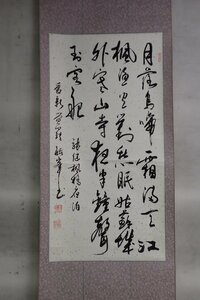 月落烏啼霜満天江
楓漁火對愁眠姑蘇城
外寒山寺夜半鐘聲
到客船
張継楓橋夜泊